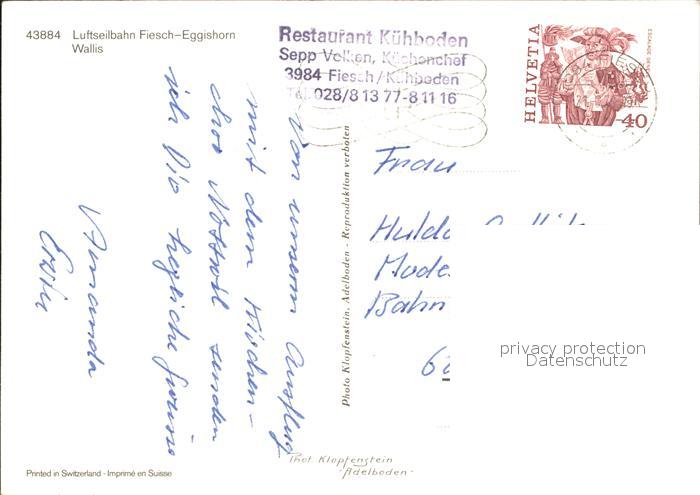 43884 Luftseilbahn Fiesch–Eggishorn
Wallis
Restaurant Kühboden
Sepp Volken, Küchenchef
3984 Fiesch/Kühboden
Tel. 028/8 13 77-8 11 16
HELVETIA
40
Von unserem Ausflug
mit dem Kirchen-
chor Nottwil senden
wir Dir herzliche Grüsse
Amanda
Erwin
Frau
Hulda
Bahn
62
Photo Klopfenstein, Adelboden - Reproduktion verboten
Phot. Klopfenstein
- Adelboden -
Printed in Switzerland - Imprimé en Suisse
privacy protection
Datenschutz